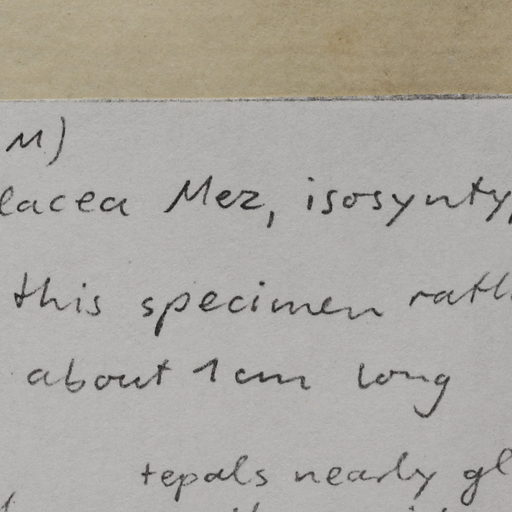 M)
lacea Mez, isosynty
this specimen rath
about 1cm long
tepals nearly gl